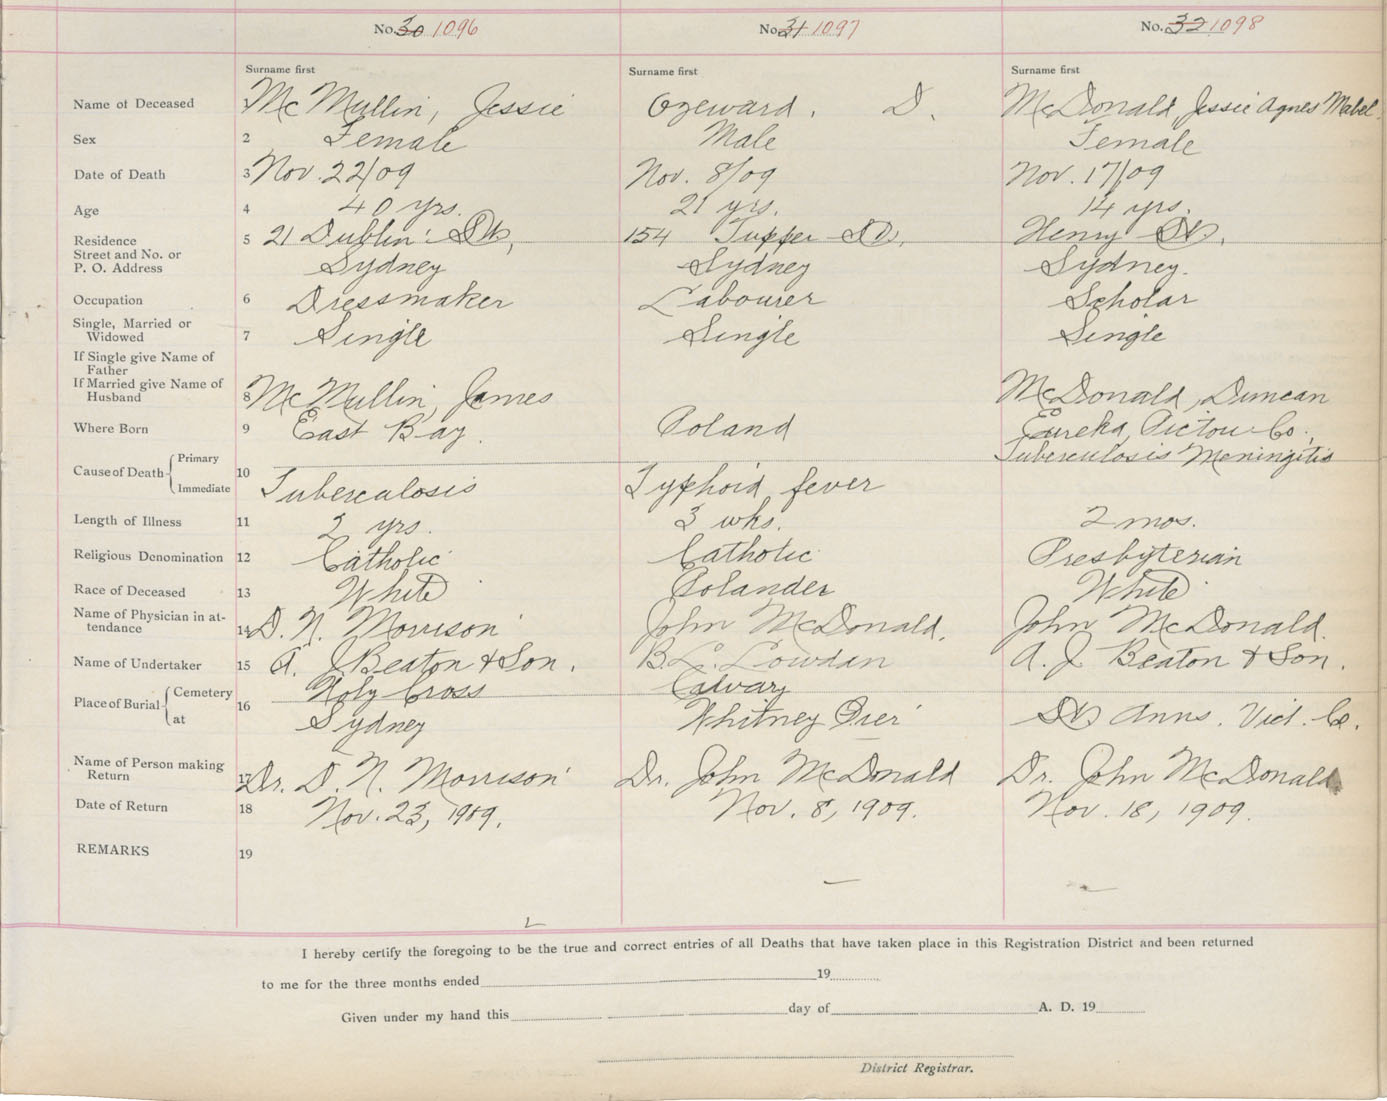 No. 30 1096 No. 31 1097 No. 32 1098
Surname first Surname first Surname first
Name of Deceased 1 Mc Mullin, Jessie Ozeward, D. McDonald, Jessie Agnes Mabel
Sex 2 Female Male Female
Date of Death 3 Nov. 22/09 Nov. 8/09 Nov. 17/09
Age 4 40 yrs. 21 yrs. 14 yrs.
Residence 5 21 Dublin St., 154 Tupper St., Henry St.,
Street and No. or
P. O. Address Sydney Sydney Sydney.
Occupation 6 Dressmaker Labourer Scholar
Single, Married or
Widowed 7 Single Single Single
If Single give Name of
Father
If Married give Name of
Husband 8 Mc Mullin, James McDonald, Duncan
Where Born 9 East Bay. Poland Eureka, Pictou Co.,
Cause of Death { Primary Tuberculosis Meningitis
10
Immediate Tuberculosis Typhoid fever
Length of Illness 11 2 yrs. 3 wks. 2 mos.
Religious Denomination 12 Catholic Catholic Presbyterian
Race of Deceased 13 White Polander White
Name of Physician in at-
tendance 14 D. N. Morrison John McDonald. John McDonald.
Name of Undertaker 15 A. J. Beaton & Son. B. L. Lowdan A. J Beaton & Son.
Place of Burial { Cemetery Holy Cross Calvary
16
at Sydney Whitney Pier St Anns. Vict. Co.
Name of Person making
Return 17 Dr. D. N. Morrison Dr. John McDonald Dr. John McDonald
Date of Return 18 Nov. 23, 1909. Nov. 8, 1909. Nov. 18, 1909.
REMARKS 19
I hereby certify the foregoing to be the true and correct entries of all Deaths that have taken place in this Registration District and been returned
to me for the three months ended 19
Given under my hand this day of A. D. 19
District Registrar.